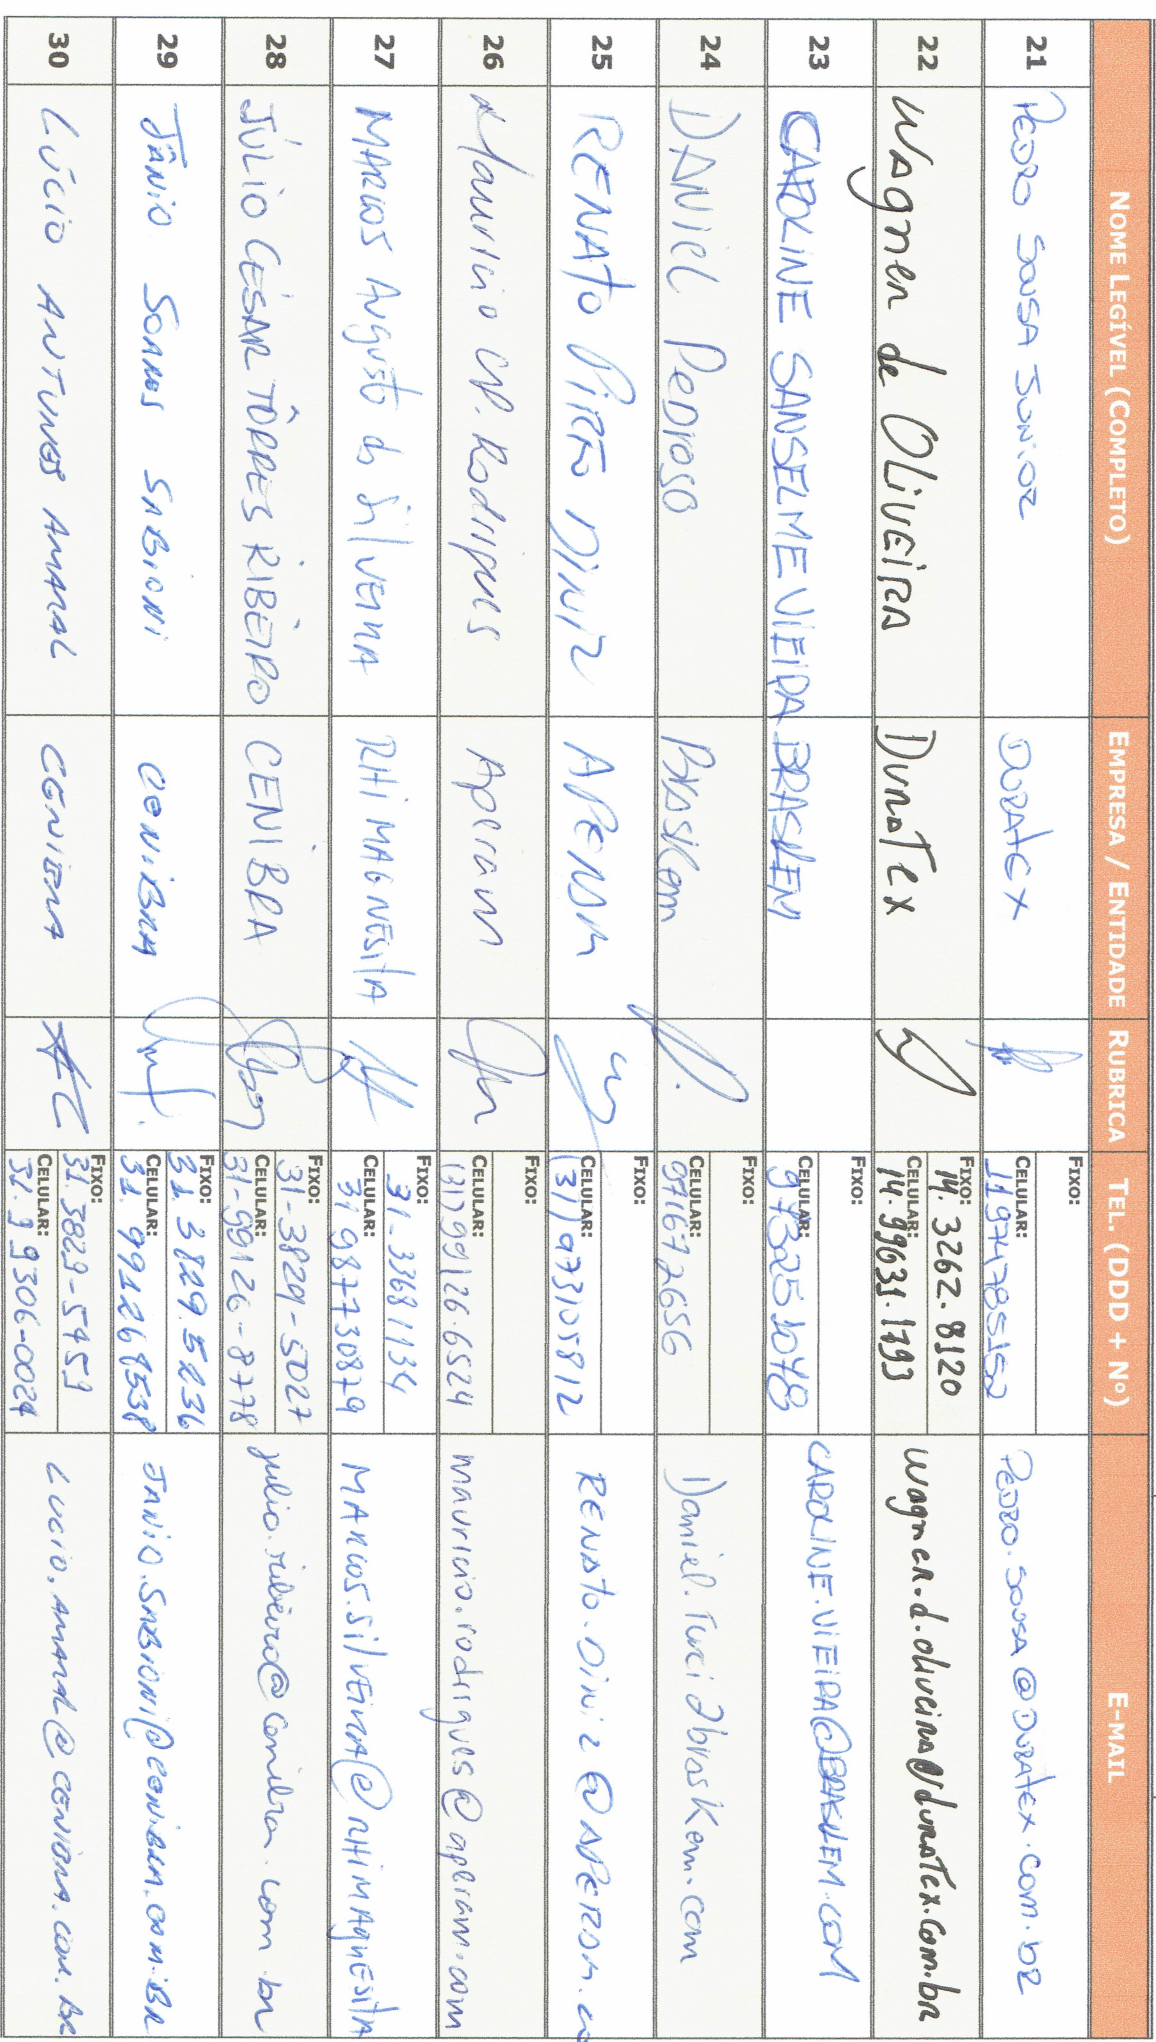 NOME LEGÍVEL (COMPLETO) EMPRESA / ENTIDADE RUBRICA TEL. (DDD + Nº) E-MAIL
21 PEDRO SOUSA JUNIOR DURATEX FIXO: CELULAR: 11974785152 PEDRO.SOUSA@DURATEX.COM.BR
22 Wagner de OLiVEiRA DuraTex FIXO: 14.3262.8120 CELULAR: 14.99631.1793 wagner.d.oliveira@duraTex.com.br
23 CAROLINE SANSELME VIEIRA BRASKEM FIXO: CELULAR: 973251048 CAROLINE.VIEIRA@BRASKEM.COM
24 DANIEL PEDROSO Braskem FIXO: CELULAR: 971672656
25 RENATO PIRES DINIZ APERAM FIXO: CELULAR: (31)973105812
26 Mauricio CP. Rodrigues Aperam FIXO: CELULAR: (31)99126.6524 mauricio.rodrigues@aperam.com
27 MARCOS AUGUSTO da SilVEIRA RHI MAGNESITA FIXO: 31-33681134 CELULAR: 31 987730879 MARCOS.SilVEIRA@RHIMAgnESITA
28 JÚLIO CÉSAR TÔRRES RIBEIRO CENIBRA FIXO: 31-3829-5027 CELULAR: 31-99126-8778 julio.ribeiro@cenibra.com.br
29 JÂNIO SOARES SABIONI CENIBRA FIXO: 31.3829.5236 CELULAR: 31.991268538 JANIO.SABIONI@CENIBRA.COM.BR
30 LÚCIO ANTUNES AMARAL CENIBRA FIXO: 31.3829-5459 CELULAR: 31.99306-0024 LUCIO.AMARAL@CENIBRA.COM.BR